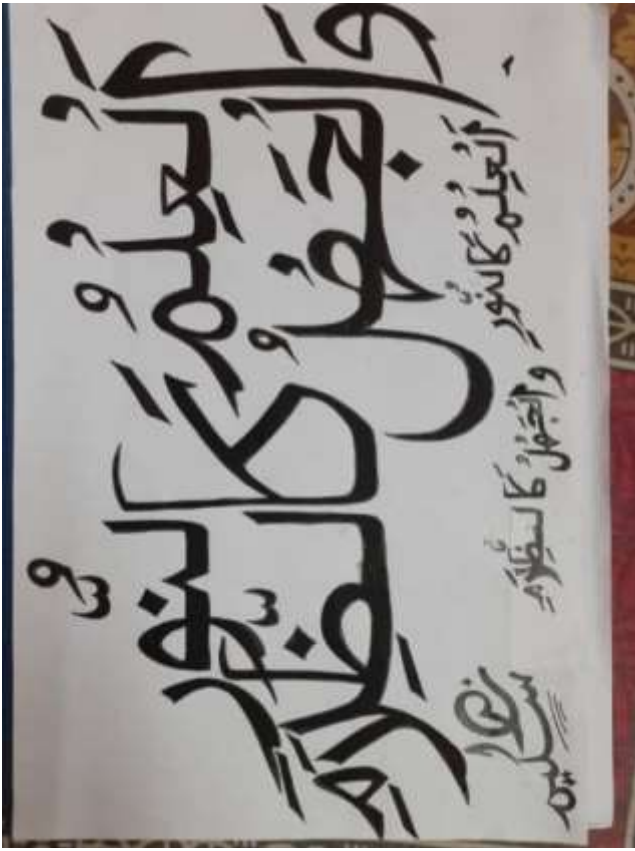 اَلْعِلْمُ كَالنُّوْرِ
وَالْجَهْلُ كَالظَّلَامِ
اَلْعِلْمُ كَالنُّوْرِ وَالْجَهْلُ كَالظَّلَامِ